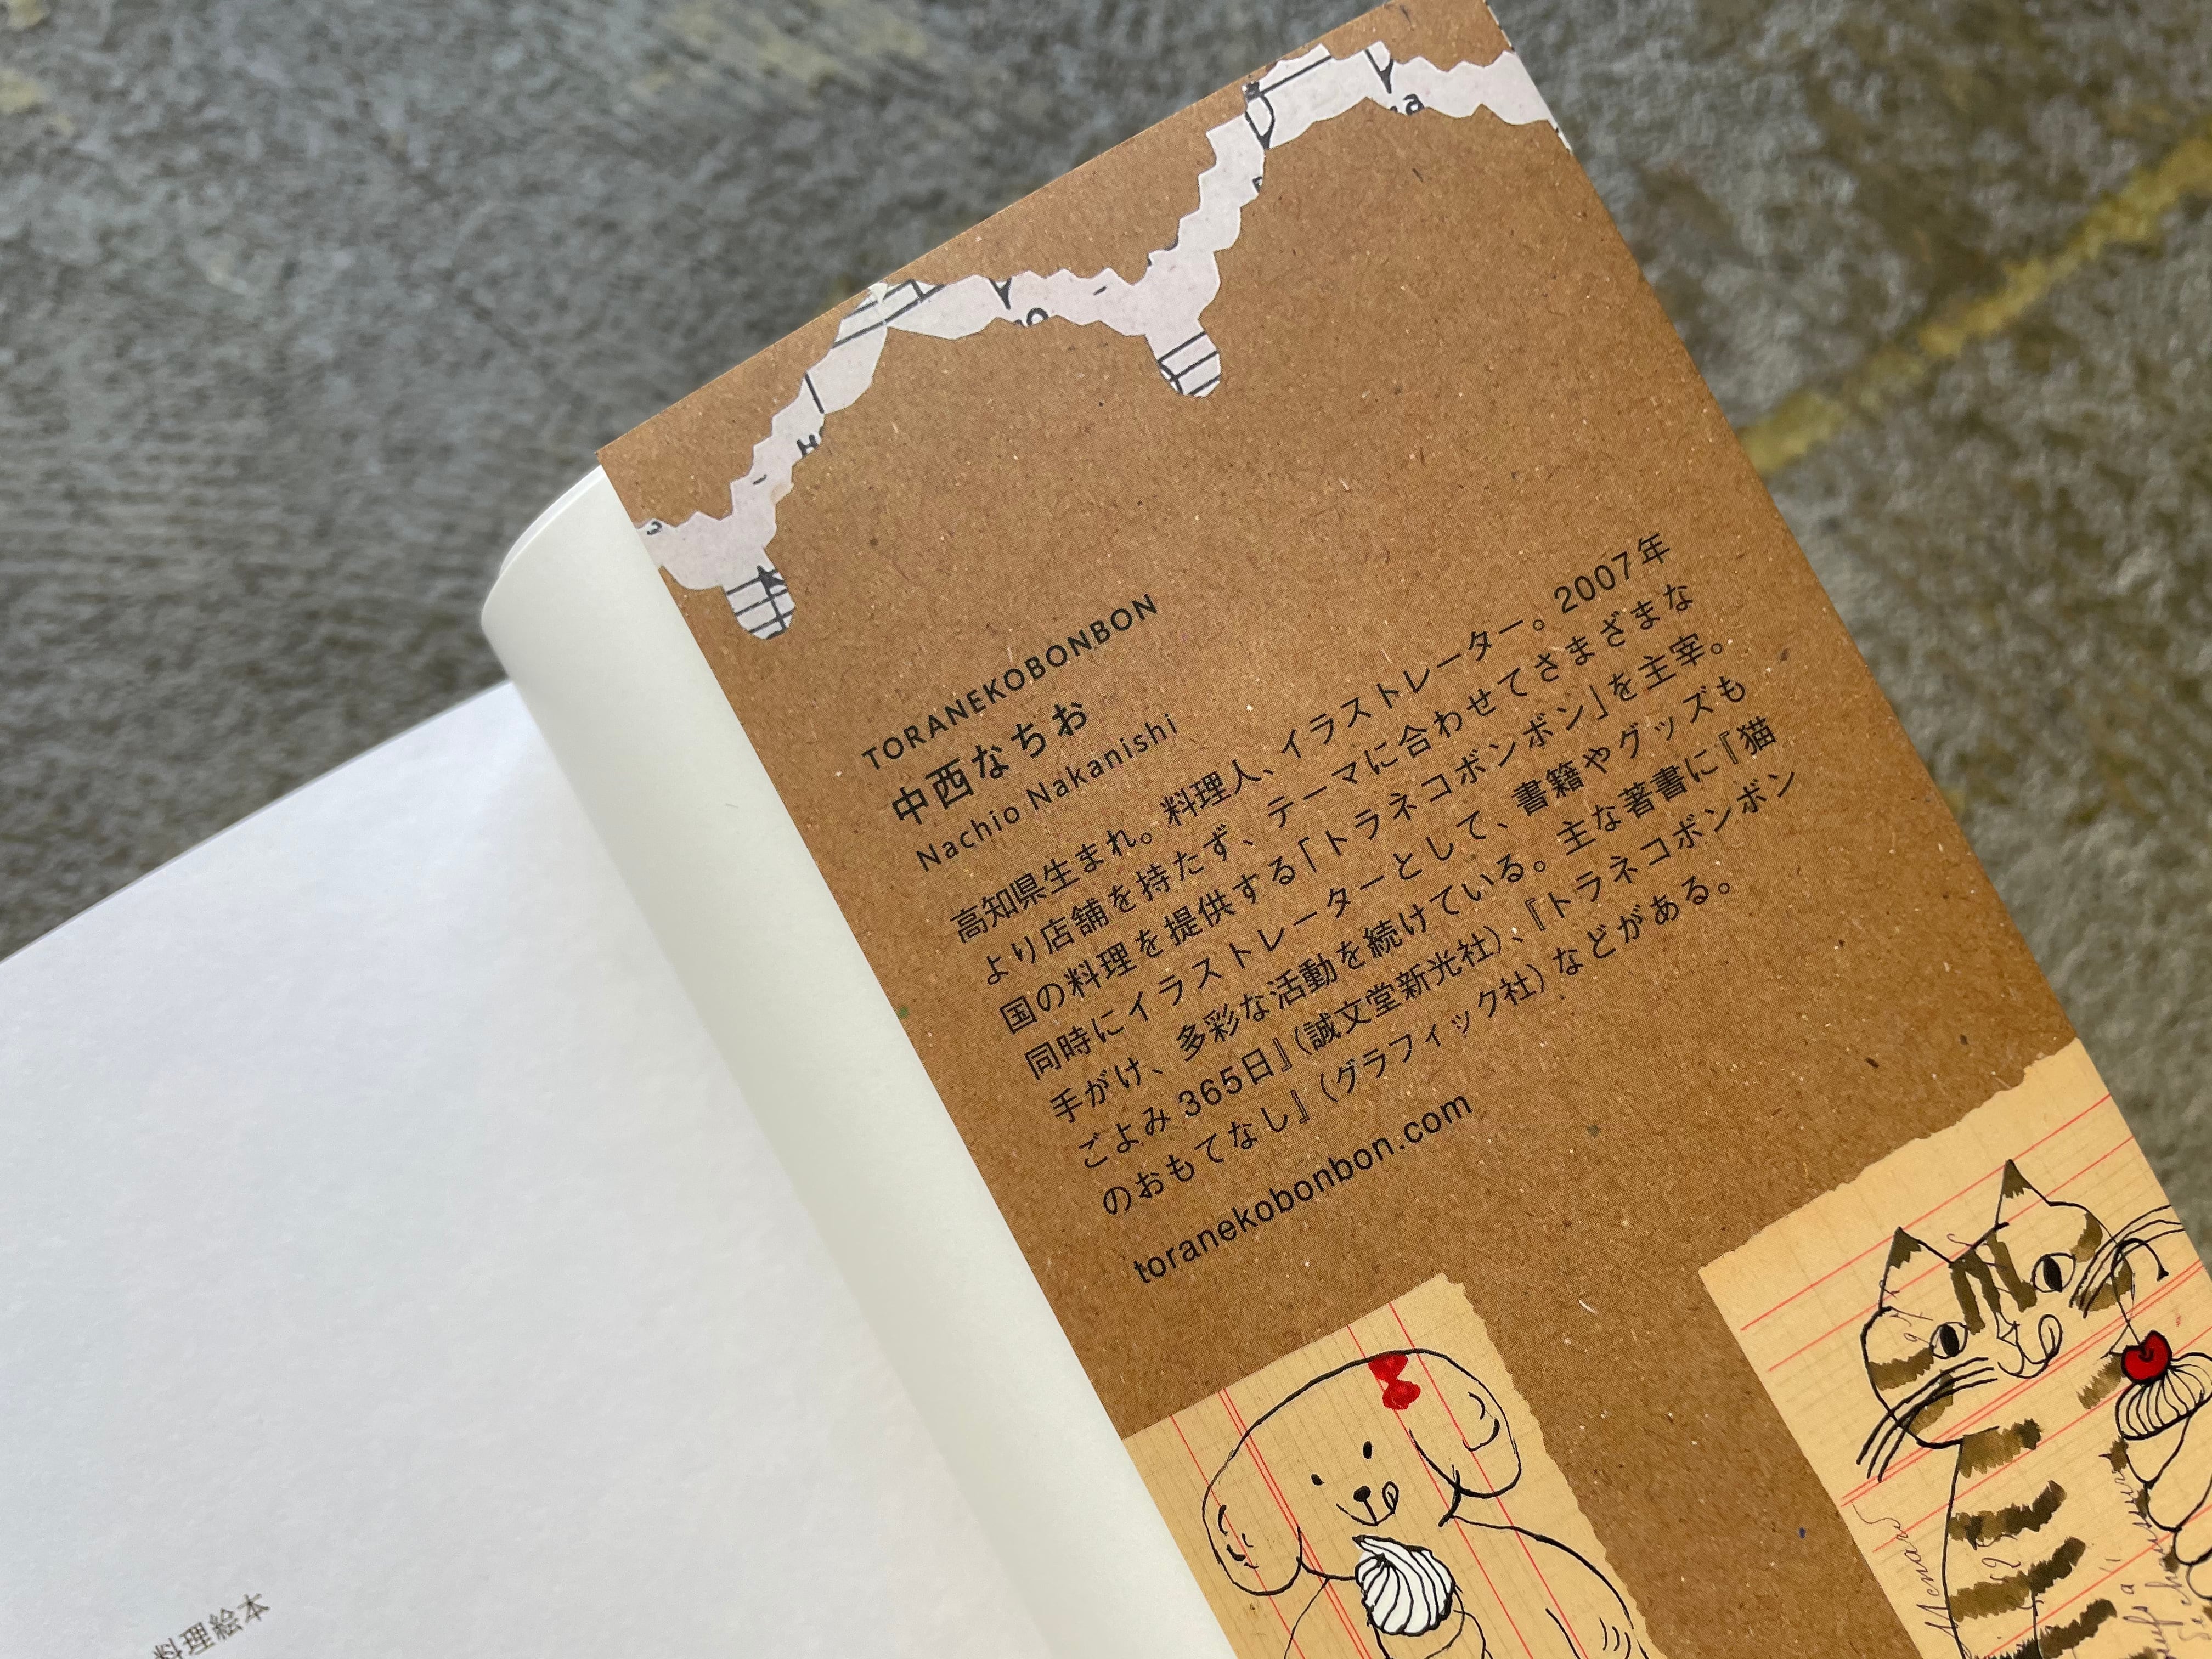 TORANEKOBONBON
中西なちお
Nachio Nakanishi
高知県生まれ。料理人、イラストレーター。2007年
より店舗を持たず、テーマに合わせてさまざまな
国の料理を提供する「トラネコボンボン」を主宰。
同時にイラストレーターとして、書籍やグッズも
手がけ、多彩な活動を続けている。主な著書に『猫
ごよみ 365日』（誠文堂新光社）、『トラネコボンボン
のおもてなし』（グラフィック社）などがある。
toranekobonbon.com
料理絵本